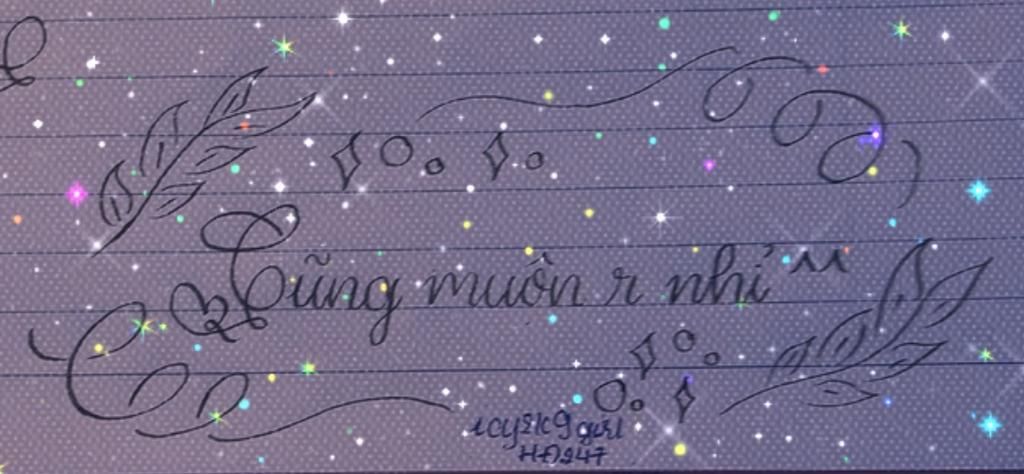 Cũng muộn r nhỉ ^^
icy2k9 gurl
HD247